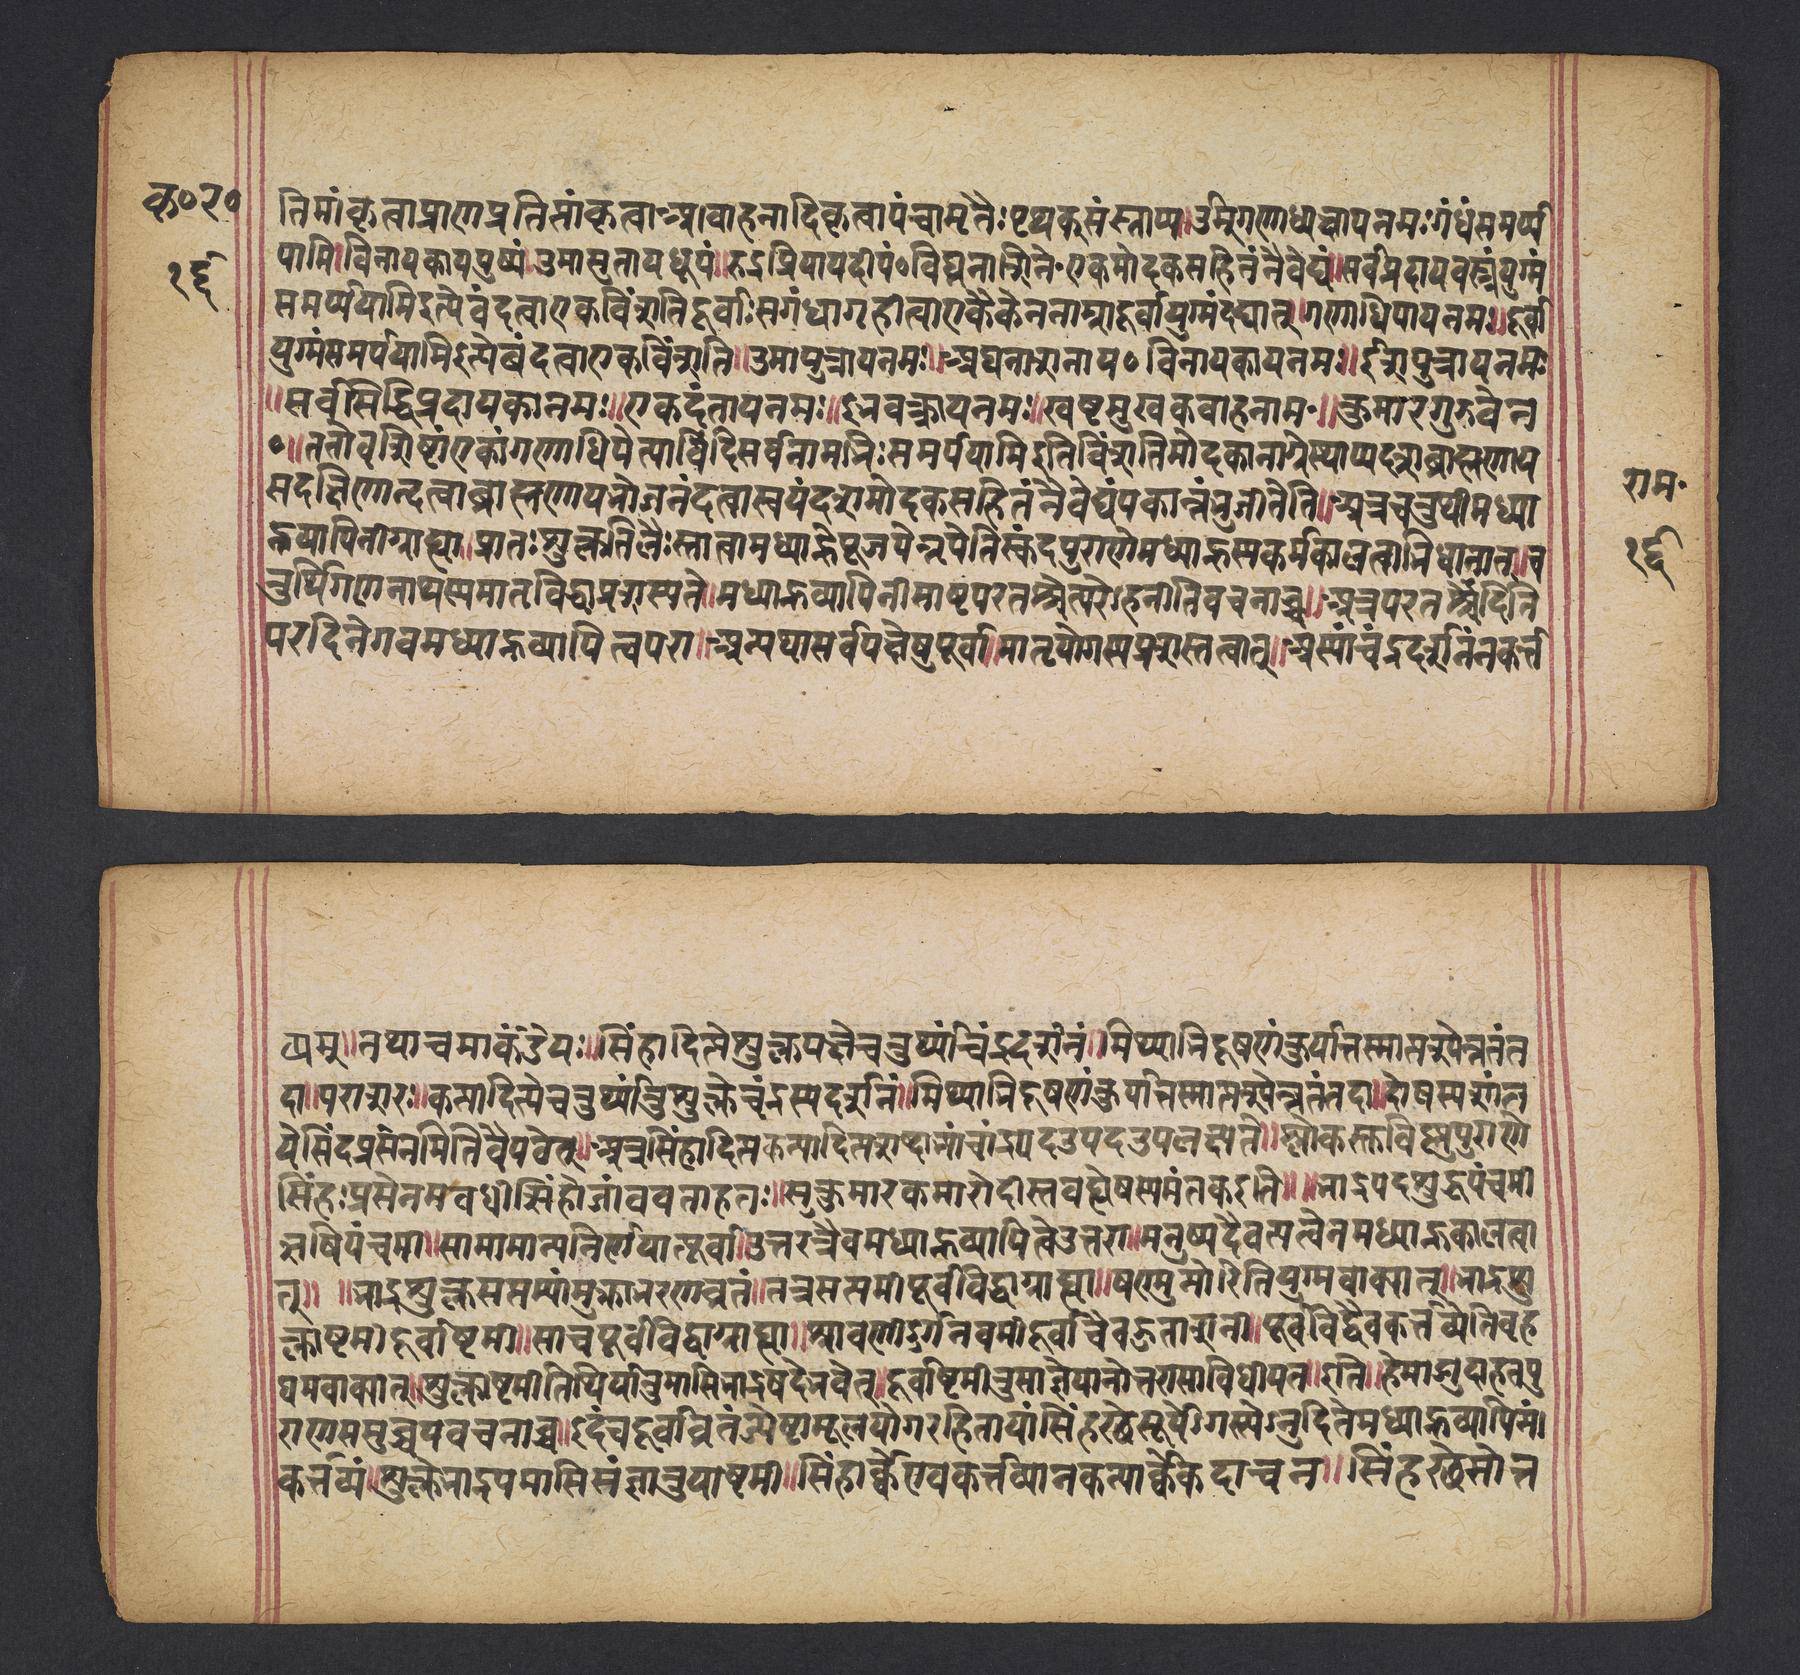 क॰र॰
१६
तिमां कृत्वा प्राणप्रतिमां कृत्वा आवाहनादि कृत्वा पंचामृतैः पृथक् सं स्नाप्य ॥ उमुगणाध्यक्षाय नमः गंधं समर्प्प
यामि । विनायकाय पुष्पं उमासुताय धूपं ॥ रुद्रप्रियाय दीपं॰ विघ्ननाशिने॰ एकमोदकसहितं नैवेद्यं ॥ सर्वप्रदाय वस्त्रं युग्मं
समर्प्पयामि इत्येवं दत्वा एकविंशति दूर्वाः सगंधा गृहीत्वा एकैकेन नाम्ना दूर्वायुग्मं दद्यात् ॥ गणाधिपाय नमः ॥ दूर्वा
युग्मं समर्पयामि इत्येवं दत्वा एकविंशति ॥ उमापुत्राय नमः ॥ अघनाशनाय॰ विनायकाय नमः ॥ ईशपुत्राय नमः
॥ सर्वसिद्धिप्रदायका नमः ॥ एकदंताय नमः ॥ इभवक्त्राय नमः ॥ मुखकवाहनाम॰ ॥ कुमारगुरुवे न
॰ ॥ ततोवशिष्टां एकां गणाधिपेत्यादि सर्वनामभिः समर्पयामि इति विंशति मोदकानाग्रे स्थाप्य दश ब्राह्मणाय
सदक्षिणान्दत्वा ब्राह्मणाय भोजनं दत्वा स्वयं दश मोदकसहितं नैवेद्यं पकान्नं भुजीतेति ॥ अत्र चतुर्थी मध्या
ह्नव्यापिनी ग्राह्या ॥ प्रातः शुक्लतिलैः स्नात्वा मध्याह्ने पूजयेन्नृपेति स्कंदपुराणे मध्याह्नस्य कर्मकालत्वाभिधानात् ॥ च
तुर्थि गणनाथस्य मातृविद्धा प्रशस्यते ॥ मध्याह्नव्यापिनी परतश्चेत्परेहनीति वचनाच्च ॥ अत्र परतश्चेदिति
परदिने गवमध्याह्नव्यापित्व परा ॥ अन्यथा सर्वपक्षेषु पूर्वा । मातृयोगस्य प्रशस्तत्वात् ॥ अस्यां चंद्रदर्शनं न कर्त्त
राम॰
१६
व्यम् ॥ तथा च मार्कंडेयः ॥ सिंहादित्ये शुक्लपक्षे चतुर्थ्यां चंद्रदर्शनं ॥ मिथ्याभिदूषणं कुर्यात्तस्मात्पश्येन्न तं त
दा ॥ पराशरः ॥ कन्यादित्ये चतुर्थ्यां तु शुक्ले चंद्रस्य दर्शनं ॥ मिथ्याभिदूषणं कुर्यात्तस्मात्पश्येन्न तं तदा ॥ दोषस्य शांत
ये सिंदप्रसेनमिति वै पवेत् ॥ अत्र सिंहादित्य कन्यादित्यशब्दाभ्यां चांद्र पद उपलक्ष्यते ॥ श्लोकस्तु विष्णुपुराणे
सिंहः प्रसेनमवधीत्सिंहो जांबवताहतः ॥ सुकुमारक मारोदीस्तव ह्येष स्यमंतक इति ॥ ॥ भाद्रपदशुद्धपंचमी
ऋषिपंचमा ॥ सामामान्यनिर्णयात्पूर्वा ॥ उत्तरत्रैव मध्याह्नव्यापित्वे उत्तरा ॥ मनुष्यदैवत्यत्वेन मध्याह्नकालत्वा
त् ॥ ॥ भाद्रशुक्लसप्तम्यां मुक्ताभरणव्रतं ॥ तत्र सप्तमी पूर्वविद्धा ग्राह्या ॥ षण्मुन्योरिति युग्मवाक्यात् ॥ भाद्रशु
क्लाष्टमी दूर्वाष्टमी ॥ सा च पूर्वविद्धा ग्राह्या ॥ श्रावणी दुर्गनवमी दूर्वा चैव हुताशनी ॥ पूर्वविद्धैव कर्त्तव्येति वृह
द्यमवाक्यात् ॥ शुक्लाष्टमी तिथिर्या तु मासि भाद्रपदे भवेत् ॥ दूर्वाष्टमी तु सा ज्ञेया नोत्तरा सा विधीयत ॥ इति ॥ हेमाद्रौ पु
राणसमुच्चयवचनाच्च ॥ इदं च दूर्वाव्रतं ज्येष्ठामूलयोगरहितायां सिंहस्थे सूर्येगस्त्येनुदिते मध्याह्नव्यापिमां
कर्त्तव्यं ॥ शुक्ले भाद्रपमासि संज्ञा तु याष्टमी ॥ सिंहार्क्के एव कर्त्तव्या न कन्यार्क्के कदाचन ॥ सिंहस्थे सोत्त